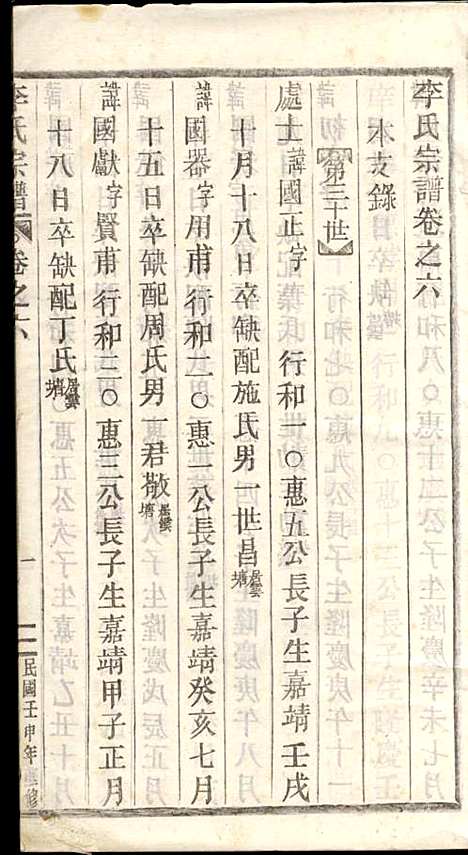 李氏宗譜卷之六
木支錄
【第三十世】
處士諱國正字 行和一〇惠五公長子生嘉靖壬戌
十月十八日卒缺配施氏男一世昌居雲塘
諱國器字用甫行和二〇惠一公長子生嘉靖癸亥七月
十五日卒缺配周氏男一君敬居雲塘
諱國獻字賢甫行和三〇惠三公長子生嘉靖甲子正月
十八日卒缺配丁氏居雲塘
李氏宗譜 卷之六 一 民國壬申年重修